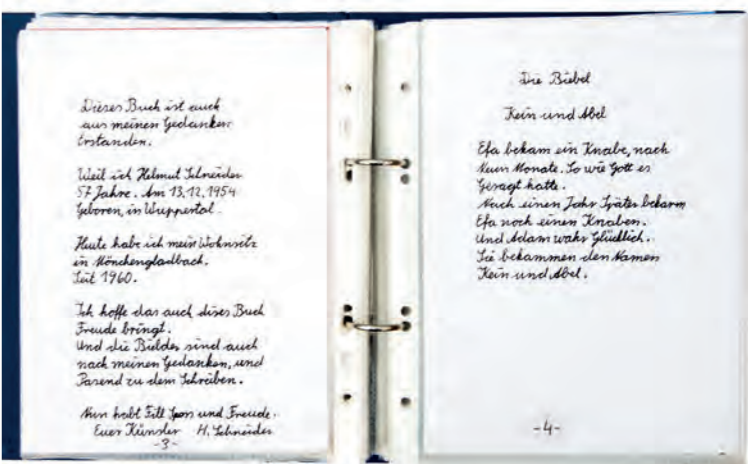 Dieses Buch ist auch
aus meinen Gedanken
Erstanden.
Weil ich Helmut Schneider
57 Jahre. Am 13.12.1954
Geboren, in Wuppertal.
Heute habe ich mein Wohnsitz
in Mönchengladbach.
Seit 1960.
Ich hoffe das auch dises Buch
Freude bringt.
Und die Bielder sind auch
nach meinen Gedanken, und
Pasend zu dem Schreiben.
Nun habt Fill Spas und Freude.
Euer Künsler H. Schneider
-3-
Die Biebel
Kein und Abel
Efa bekam ein Knabe, nach
Neun Monate. So wie Gott es
Gesagt hatte.
Nach einen Jahr Später bekarm
Efa noch einen Knaben.
Und Adam wahr Glücklich.
Sie bekammen den Namen
Kein und Abel.
-4-